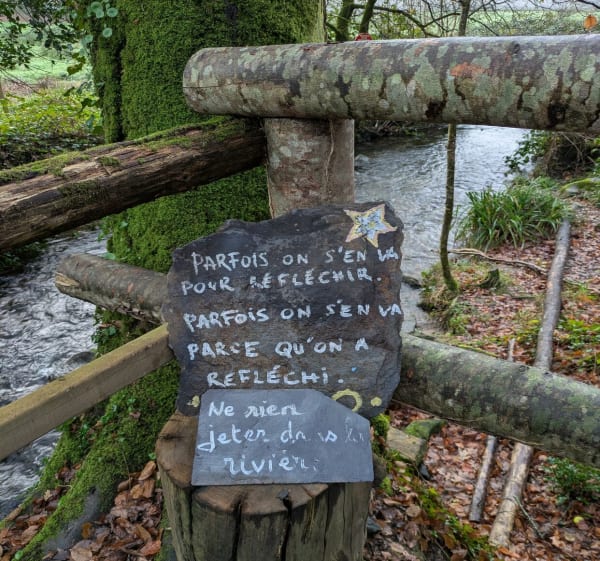 PARFOIS ON S'EN VA
POUR RÉFLÉCHIR
PARFOIS ON S'EN VA
PARCE QU'ON A
RÉFLÉCHI.
Ne rien
jeter dans la
rivièr